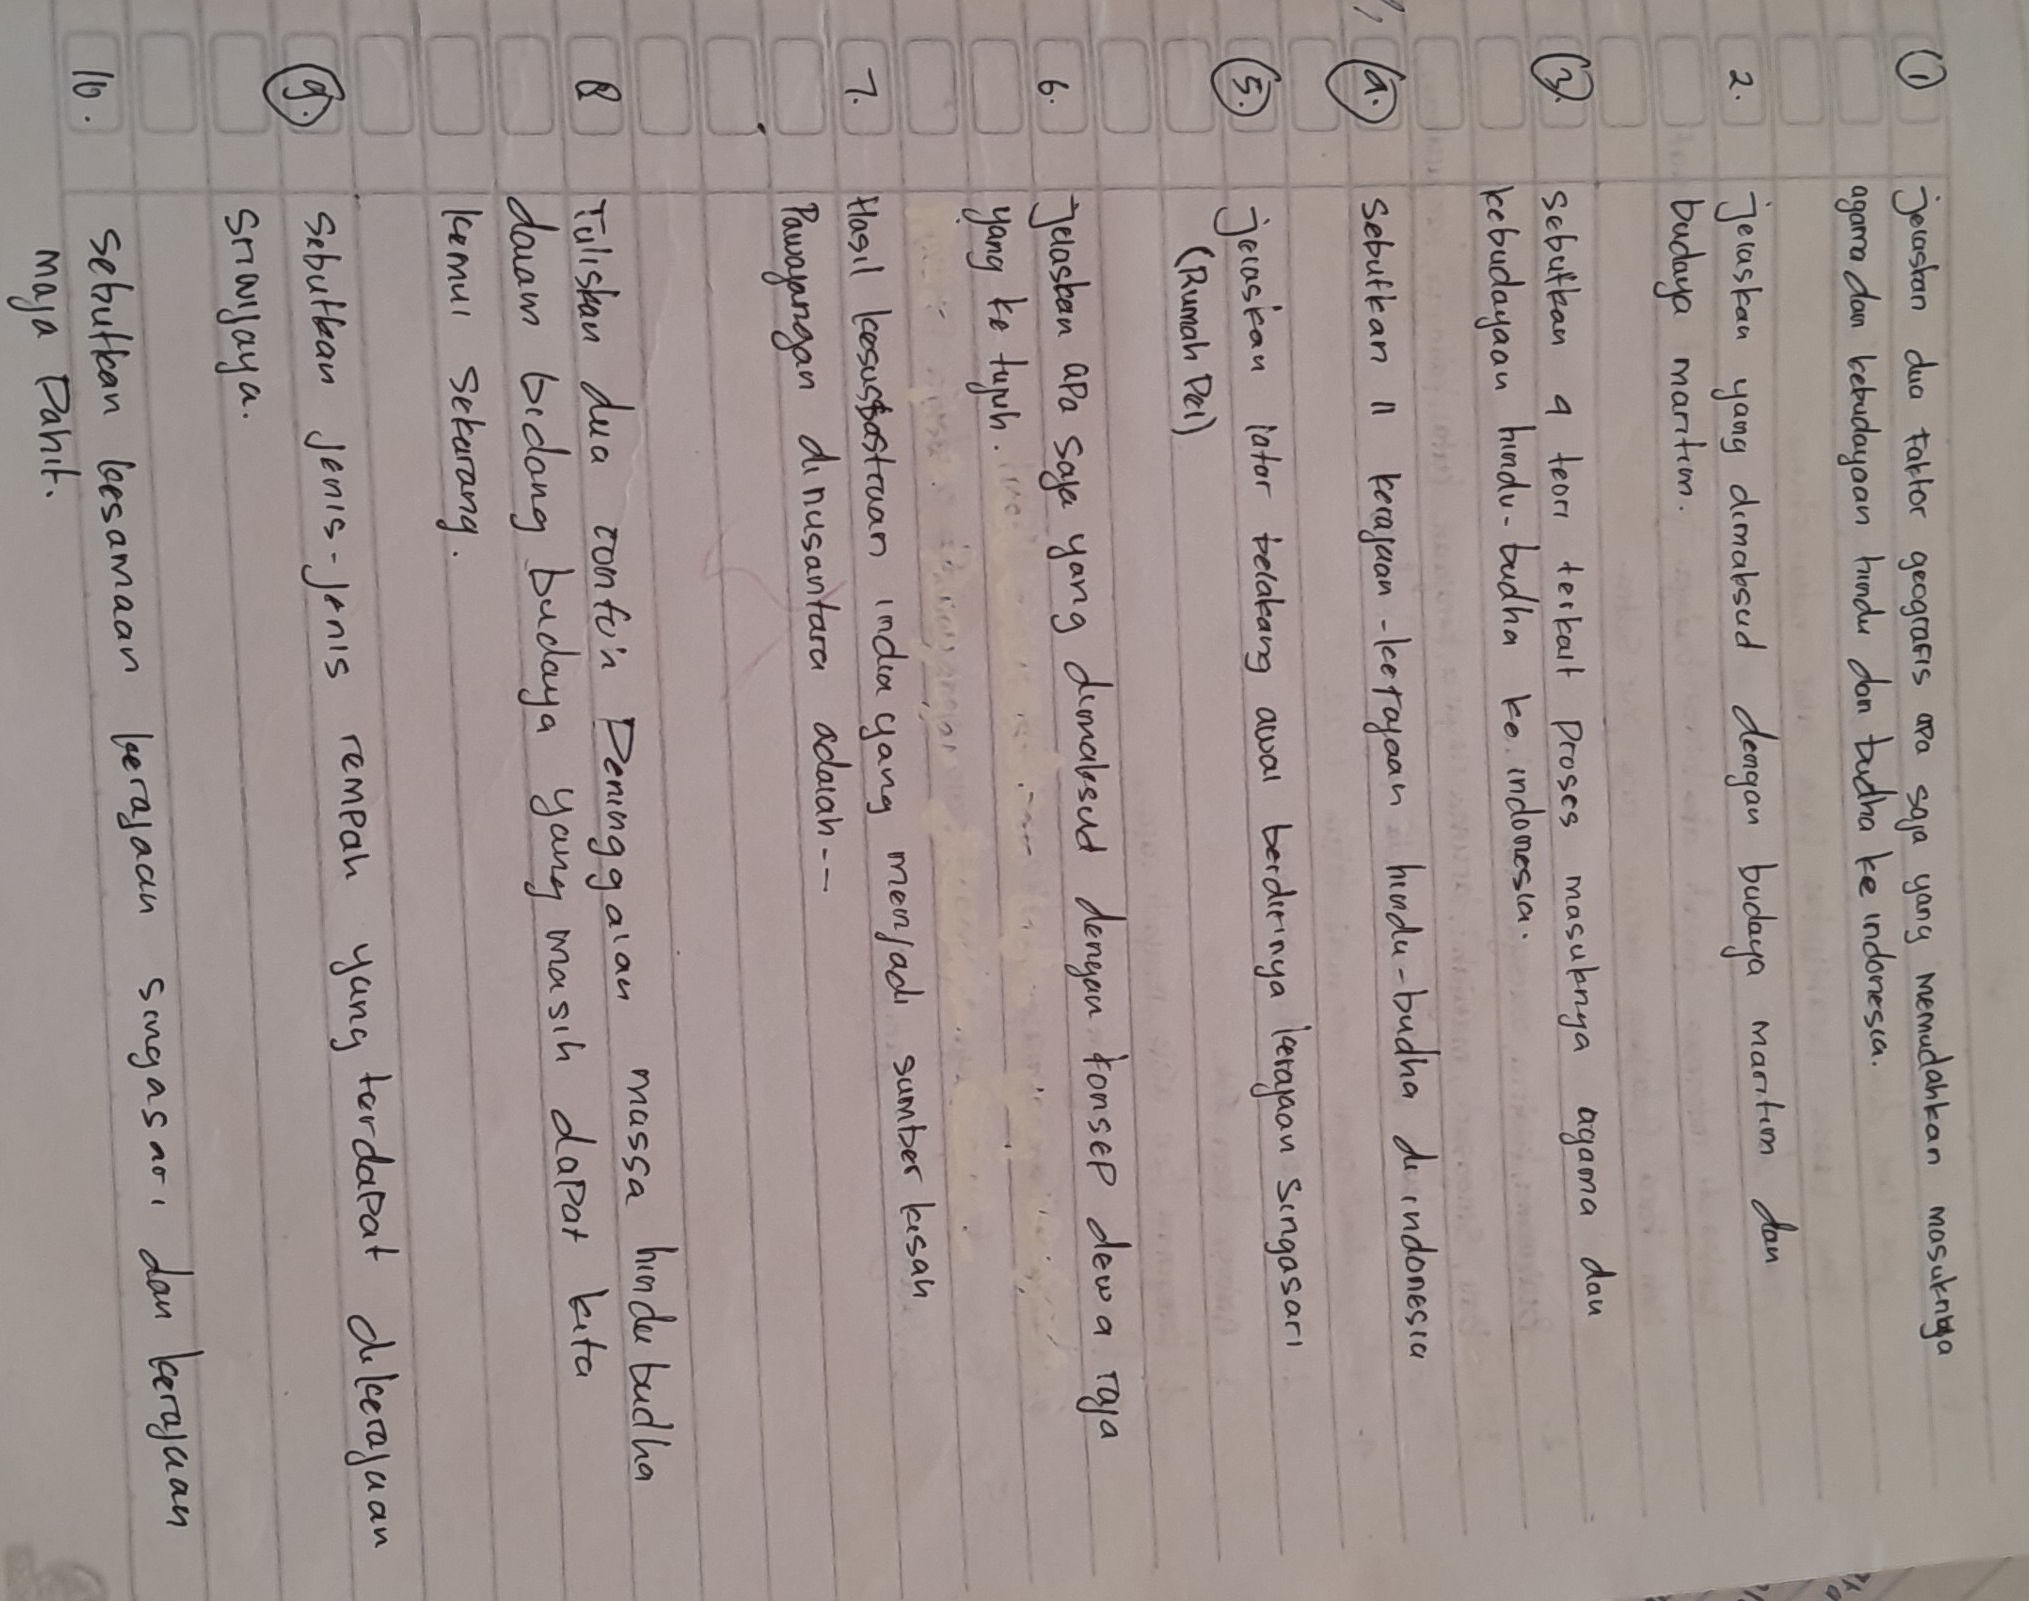 ① jelaskan dua faktor geografis apa saja yang memudahkan masuknya
agama dan kebudayaan hindu dan budha ke indonesia.
2. jelaskan yang dimaksud dengan budaya maritim dan
budaya maritim.
③. sebutkan 4 teori terkait proses masuknya agama dan
kebudayaan hindu-budha ke indonesia.
④. sebutkan 11 kerajaan-kerajaan hindu-budha di indonesia
⑤. jelaskan latar belakang awal berdirinya kerajaan singasari
(Rumah Pel)
6. Jelaskan apa saja yang dimaksud dengan konsep dewa raja
yang ke tujuh.
7. Hasil kesusastraan india yang menjadi sumber kisah
Pawayangan dinusantara adalah---
8 Tuliskan dua contoh Peninggalan massa hindu budha
dalam bidang budaya yang masih dapat kita
temui sekarang.
⑨. Sebutkan jenis-jenis rempah yang terdapat dikerajaan
Sriwijaya.
10. sebutkan kesamaan kerajaan singasari dan kerajaan
maja Pahit.